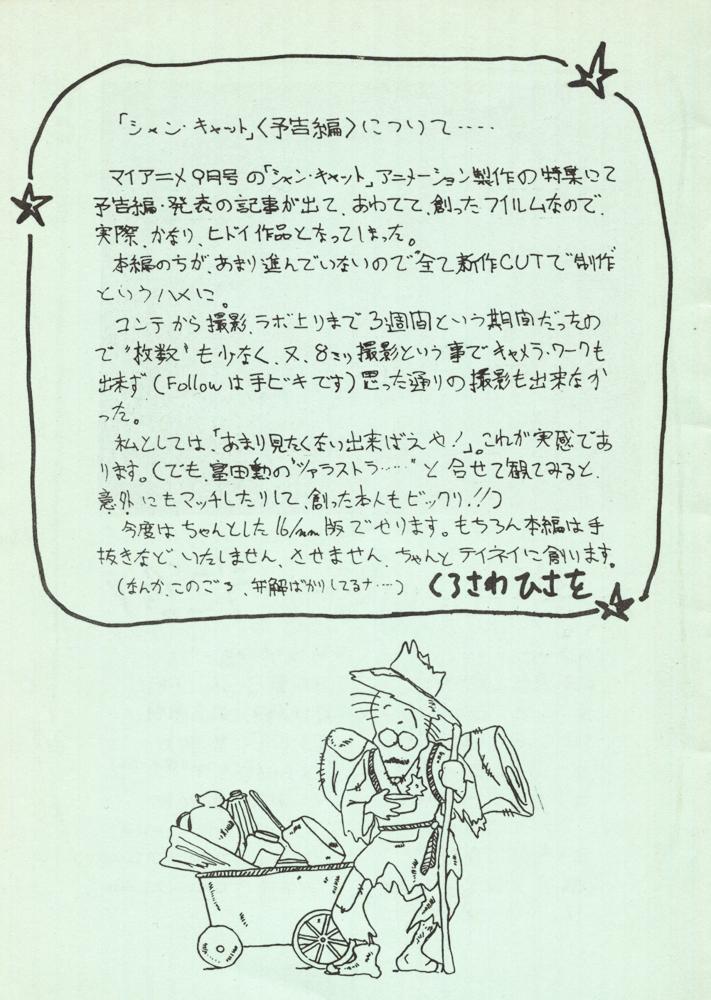 「シャン・キャット」〈予告編〉について‥‥
マイアニメ9月号の「シャン・キャット」アニメーション製作の特集にて
予告編・発表の記事が出て、あわてて、創ったフイルムなので、
実際、かなり、ヒドイ作品となってしまった。
本編のちが、あまり進んでいないので"全て新作CUTで"制作
というハメに。
コンテから撮影、ラボ上りまで3週間という期間だったの
で"枚数"も少なく、又、8ミリ撮影という事でキャメラ・ワークも
出来ず(Followは手ビキです)思った通りの撮影も出来なか
った。
私としては、「あまり見たくない出来ばえや!」。これが実感であ
ります。(でも、冨田勲の"ツァラストラ‥‥"と合せて観てみると、
意外にもマッチしたりして、創った本人もビックリ!!)
今度はちゃんとした16/mm版でやります。もちろん本編は手
抜きなど、いたしません、させません、ちゃんとテイネイに創ります。
(なんか、このごろ、弁解ばかりしてるナ‥‥) くろさわひさを